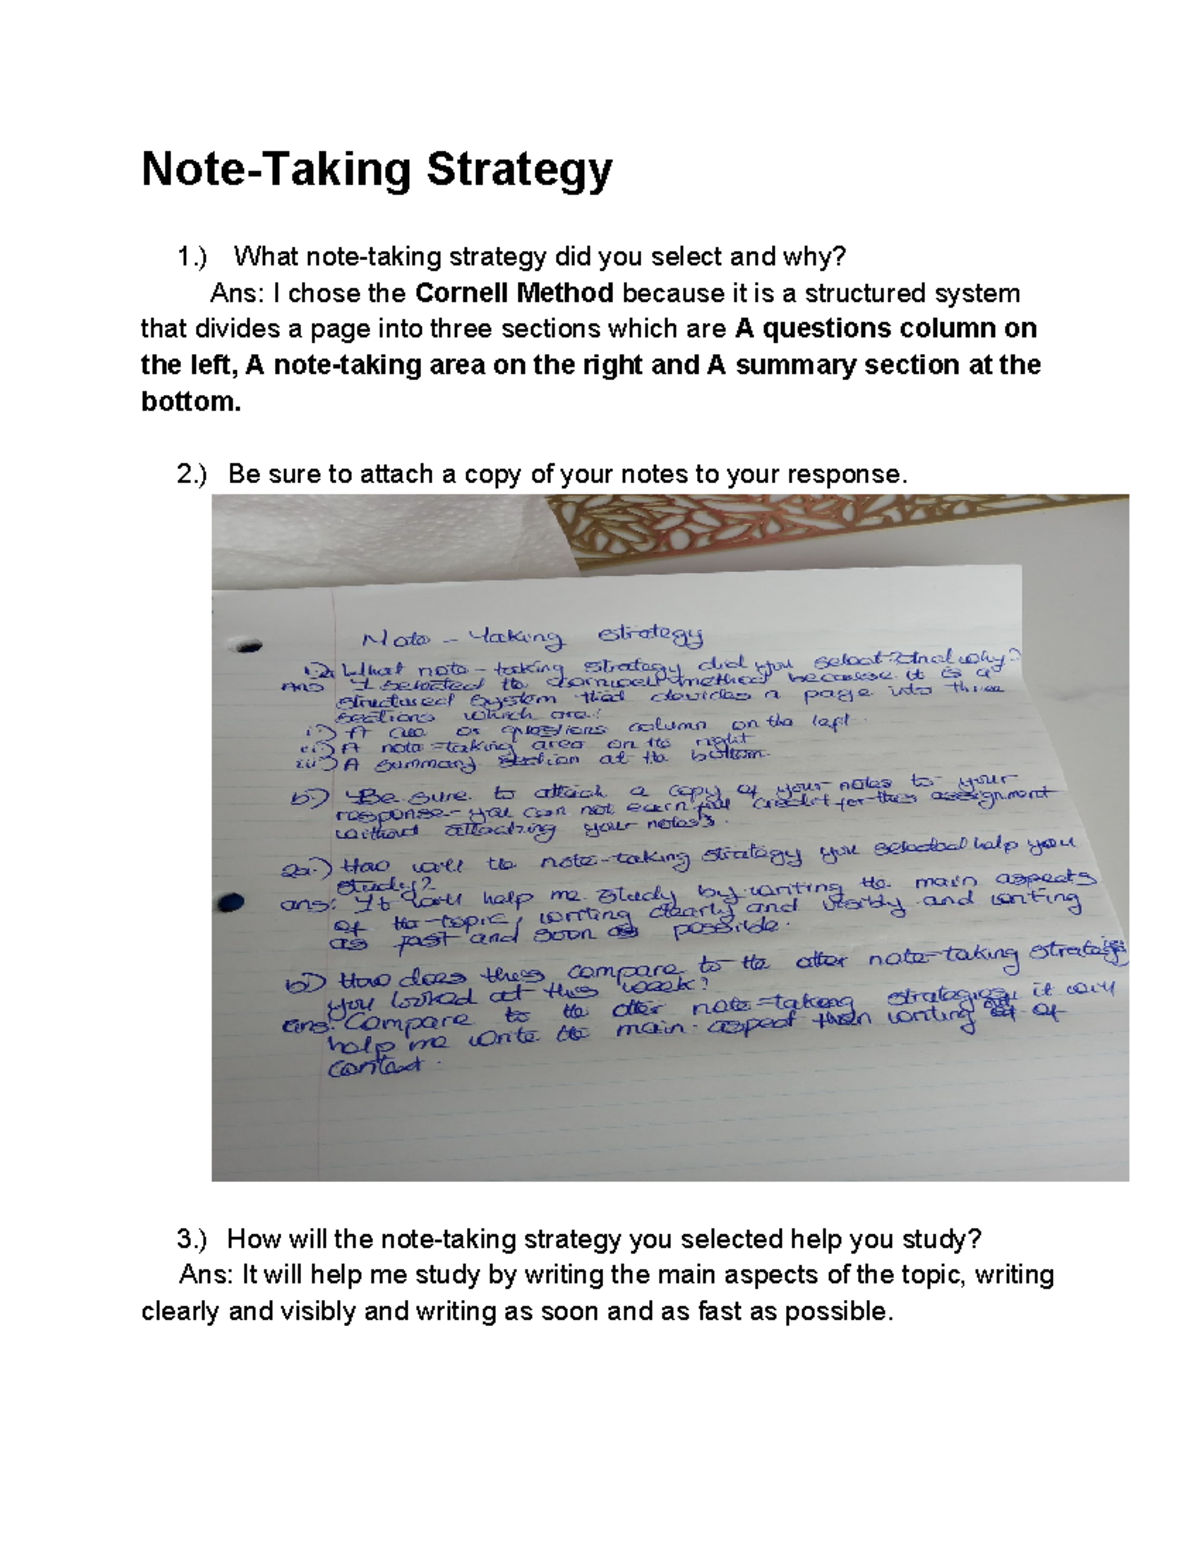 Note-Taking Strategy
1.) What note-taking strategy did you select and why?
Ans: I chose the Cornell Method because it is a structured system
that divides a page into three sections which are A questions column on
the left, A note-taking area on the right and A summary section at the
bottom.
2.) Be sure to attach a copy of your notes to your response.
Note - taking strategy
1a) What note-taking strategy did you select? And why?
Ans I selected the Cornwell method because it is a
structured system that devides a page into three
sections which are:
i) A cue or questions column on the left.
ii) A note-taking area on the right
iii) A summary section at the bottom.
b) Be sure to attach a copy of your notes to your
response-you can not earn full credit for this assignment
without attaching your notes.
2a) How will the note-taking strategy you selected help you
study?
ans: It will help me study by writing the main aspects
of the topic, writing clearly and visibly and writing
as fast and soon as possible.
b) How does this compare to the other note-taking strategies
you looked at this week?
ans: Compare to the other note-taking strategies, it will
help me write the main aspect then writing of
context.
3.) How will the note-taking strategy you selected help you study?
Ans: It will help me study by writing the main aspects of the topic, writing
clearly and visibly and writing as soon and as fast as possible.